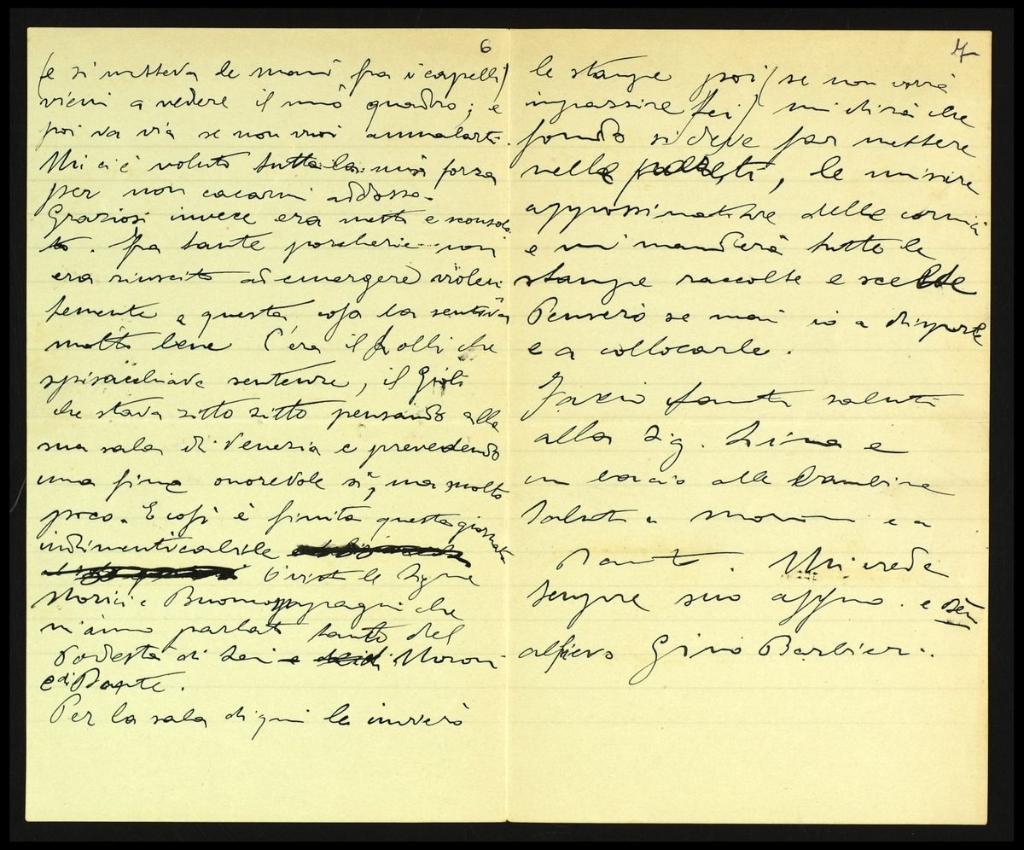 6
(e si metteva le mani fra i capelli)
vieni a vedere il mio quadro; e
poi va via se non vuoi ammalarti.
Mi ci è voluto tutta la mia forza
per non cacarmi addosso.
Graziosi invece era netto e sconsola
to. Fra tante porcherie non
era riuscito ad emergere violen
temente e questa cosa la sentiva
molto bene C'era il che
spisacchiava sentenze, il Gioli
che stava zitto zitto pensando alla
sua sala di Venezia e prevedendo
una fine onorevole sì, ma molto
poco. E così è finita questa giornata
indimenticabile
O visto le Signe
Morici e Buoncompagni che
m'anno parlato tanto del
Podestà di Lei e Moroni
e di Dante.
Per la sala di qui le invierò
7
le stampe poi (se non vorrà
impazzire lei) mi dirà che
fondo si deve far mettere
nelle pareti, le misure
approssimative delle cornici
e mi manderà tutte le
stampe raccolte e scelte
Penserò se mai io a disporle
e a collocarle.
Faccio tanti saluti
alla Sig. Lina e
un bacio alle bambine
Saluti a Moroni e a
Dante. Mi creda
sempre suo affmo. e
allievo Gino Barbieri.